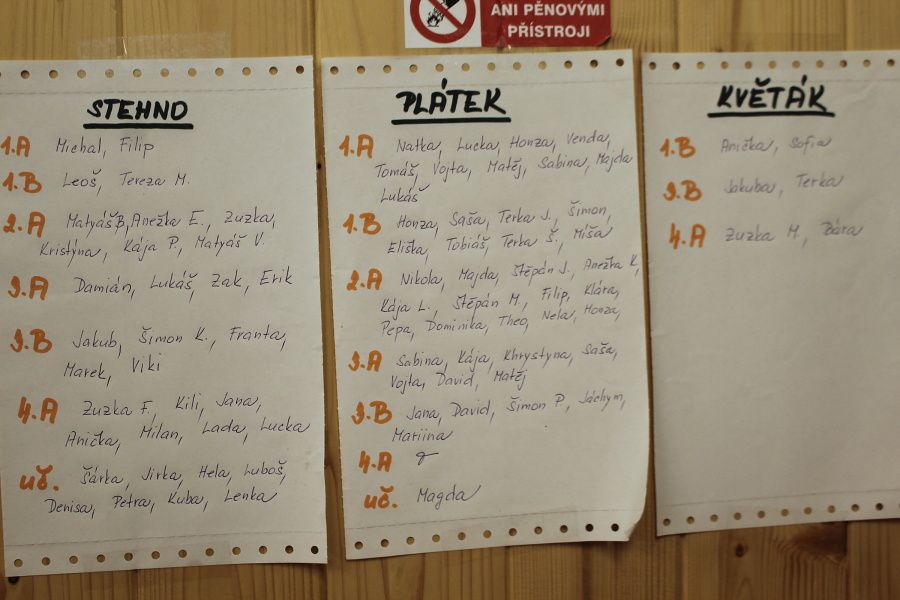 ANI PĚNOVÝMI
PŘÍSTROJI
STEHNO
1.A Michal, Filip
1.B Leoš, Tereza M.
2.A Matyáš B, Anežka E., Zuzka,
Kristýna, Kája P., Matyáš V.
3.A Damián, Lukáš, Zak, Erik
3.B Jakub, Šimon K., Franta,
Marek, Viki
4.A Zuzka F., Kili, Jana,
Anička, Milan, Lada, Lucka
uč. Šárka, Jirka, Hela, Luboš,
Denisa, Petra, Kuba, Lenka
PLÁTEK
1.A Natka, Lucka, Honza, Venda,
Tomáš, Vojta, Matěj, Sabina, Majda
Lukáš
1.B Honza, Saša, Terka J., Šimon,
Eliška, Tobiáš, Terka Š., Míša
2.A Nikola, Majda, Štěpán J., Anežka K,
Kája L., Štěpán M., Filip, Klára,
Pepa, Dominika, Theo, Nela, Honza,
3.A Sabina, Kája, Khrystyna, Saša,
Vojta, David, Matěj
3.B Jana, David, Šimon P., Jáchym,
Mariina
4.A
uč. Magda
KVĚTÁK
1.B Anička, Sofia
3.B Jakuba, Terka
4.A Zuzka M., Bára